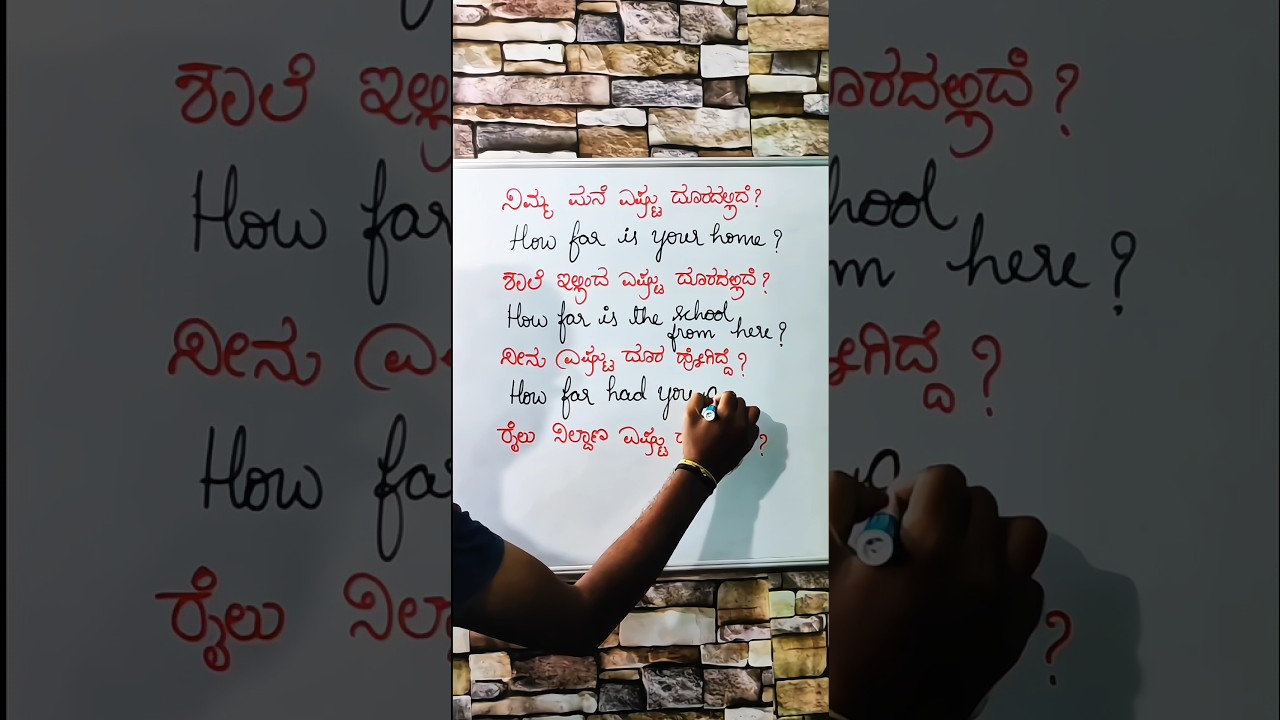 ನಿಮ್ಮ ಮನೆ ಎಷ್ಟು ದೂರದಲ್ಲಿದೆ?
How far is your home?
ಶಾಲೆ ಇಲ್ಲಿಂದ ಎಷ್ಟು ದೂರದಲ್ಲಿದೆ?
How far is the school
from here?
ನೀನು ಎಷ್ಟು ದೂರ ಹೋಗಿದ್ದೆ?
How far had you
ರೈಲು ನಿಲ್ದಾಣ ಎಷ್ಟು ?